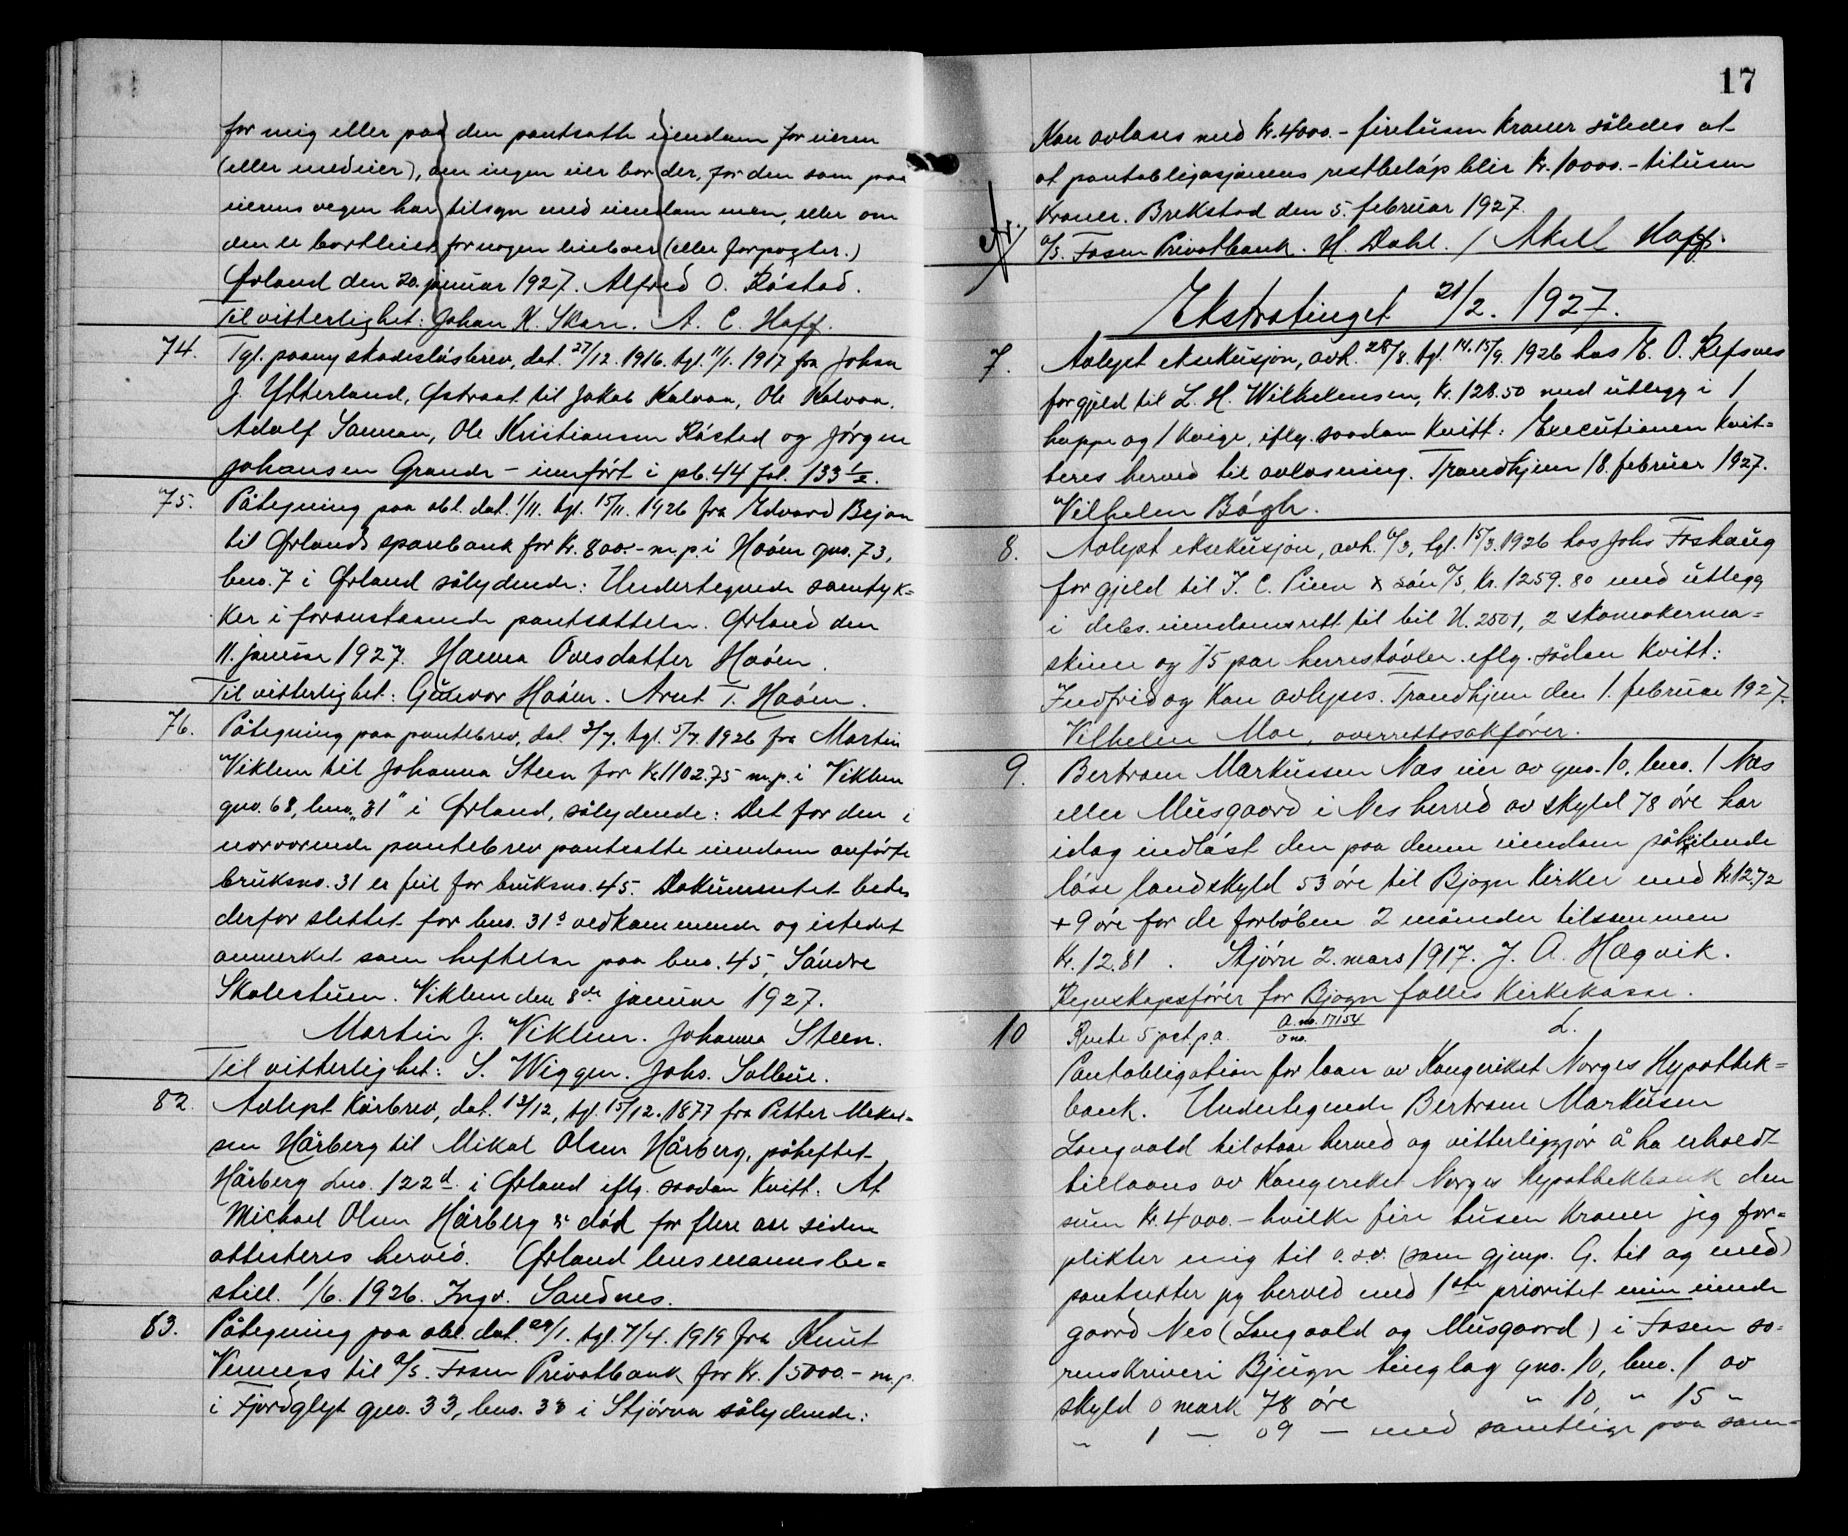 for mig eller paa den pantsatte eiendom for eieren
(eller medeier), om ingen eier bor der, for den som paa
eierens vegen har tilsyn med eiendommen, eller om
den er bortleiet for nogen leieboer (eller forpagter.)
Ørland den 20. januar 1927. Alfred O. Råstad.
Til vitterlighet: Johan K. Skare. A. C. Hoff.
74. Tgl. paany skadesløsbrev, dat. 27/12. 1916. tgl. 11/1. 1917 fra Johan
J. Ytterland, Østraat til Jakob Kalvaa, Ole Kalvaa.
Adolf Saman, Ole Kristiansen Råstad og Jørgen
Johansen Grande – innført i pb. 44 fol. 133
75. Påtegning paa obl. dat. 1/11. tgl. 15/11. 1926 fra Edvard Bejan
til Ørlands sparebank for kr. 800.- m.p. i Hoøen gno. 73,
bno. 7 i Ørland sålydende: Undertegnede samtyk=
ker i foranstaaende pantsettelse. Ørland den
11. januar 1927. Hanna Ovesdatter Hoøen.
Til vitterlighet: Gunvor Hoøen. Arnt T. Hoøen.
76. Påtegning paa pantebrev, dat. 3/7. tgl. 5/7. 1926 fra Martin
Viklem til Johanna Steen for kr. 1102.75 m.p. i Viklem
gno. 68, bno. "31" i Ørland, sålydende: Det for den i
nærværende pantebrev pantsatte eiendom anførte
bruksno. 31 er feil for bruksno. 45. Dokumentet bedes
derfor slettet for bno. 31s vedkommende og istedet
anmerket som heftelse paa bno. 45, Søndre
Skolestuen. Viklem den 8de januar 1927.
Martin J. Viklem. Johanna Steen.
Til vitterlighet: S. Wiggen. Johs. Solbue.
82. Avlyst kårbrev, dat. 13/12, tgl. 15/12. 1877 fra Petter Mekel-
sen Hårberg til Mikal Olsen Hårberg, påheftet
Hårberg Lno. 122d. i Ørland iflg. saadan kvitt: At
Michael Olsen Hårberg er død for flere aar siden
attesteres herved. Ørland lensmannsbe=
still. 1/6. 1926. Ingv. Sandnes.
83. Påtegning paa obl. dat. 29/1. tgl. 7/4. 1919 fra Knut
Vemness til a/s. Fosen Privatbank for kr. 15000.- m.p.
i Fjordglyt gno. 33, bno. 38 i Stjørna sålydende:
17
Kan avløses med kr. 4000.- firetusen kroner således at
at pantobligasjonens restbeløp blir kr. 10000.- titusen
kroner. Brekstad den 5. februar 1927.
a/s. Fosen Privatbank. H. Dahl. / Aksel Hoff.
Ekstratinget 21/2. 1927.
7. Avlyst eksekusjon, avh. 28/8. tgl. 14.15/9. 1926 hos E. O. Refsnes
for gjeld til L. H. Wilhelmsen, kr. 128.50 med utlegg i 1
hoppe og 1 kvige, iflg. saadan kvitt: Executionen kvit=
teres herved til avlæsning. Trondhjem 18. februar 1927.
Vilhelm Bøgh.
8. Avlyst eksekusjon, avh. 6/3, tgl. 15/3. 1926 hos Johs Foshaug
for gjeld til I. C. Piene & søn a/s, kr. 1259.80 med utlegg
i debs. eiendomsrett til bil U. 2501, 2 skomakerma=
skiner og 75 par herrestøvler iflg. sådan kvitt:
Indfrid og kan avlyses. Trondhjem den 1. februar 1927.
Vilhelm Moe, overrettssakfører.
9. Bertram Markussen Næs eier av gno. 10, bno. 1 Næs
eller Musgaard i Nes herred av skyld 78 øre har
idag indløst den paa denne eiendom påhvilende
løse landskyld 53 øre til Bjugn kirker med kr. 12,72
+ 9 øre for de forløbne 2 måneder tilsammen
kr. 12.81. Stjørn 2. mars 1917. J. A. Hægvik.
Regnskapsfører for Bjugn felles kirkekasse.
10 Rente 5 pct. p.a. A. no. 17154 L.
o no.
Pantobligation for laan av Kongeriket Norges Hypothek=
bank. Undertegnede Bertram Markusen
Langvold tilstaar herved og vitterliggjør å ha erholdt
tillaans av Kongeriket Norges Hypothekbank den
sum kr. 4000.- hvilke fire tusen kroner jeg for=
plikter mig til o.s.v. (som gjenp. G. til og med)
pantsetter jeg herved med 1ste prioritet min eiende
gaard Nes (Langvold og Musgaard) i Fosen so-
renskriveri Bjugn tinglag gno. 10, bno. 1 av
skyld 0 mark 78 øre " 10, " 15 "
" 1 – 09 – med samtlige paa sam-